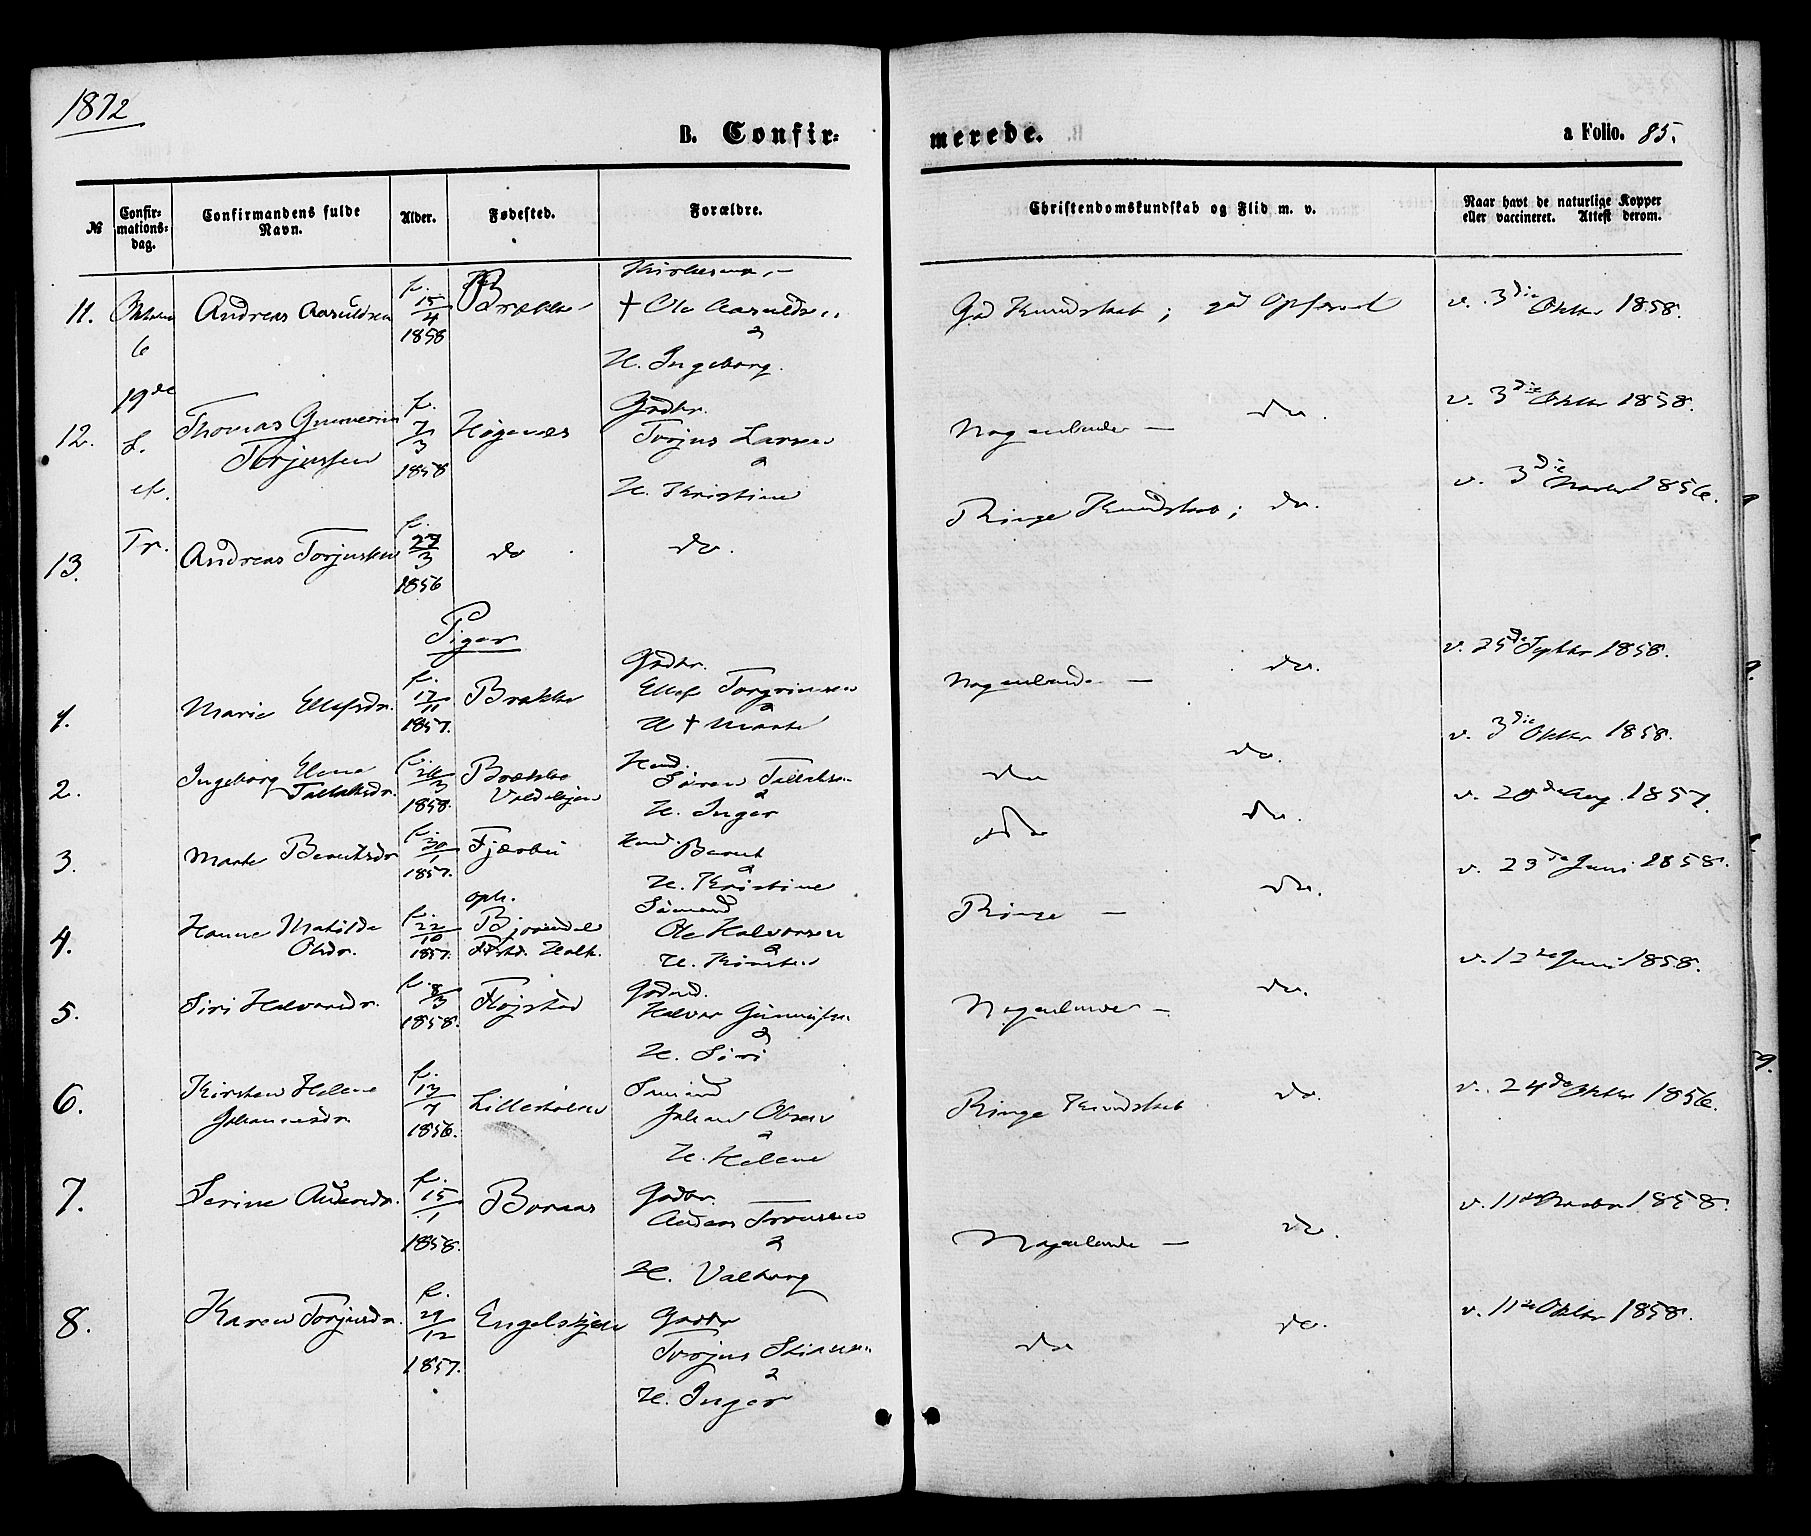 1872
B. Confir-
merede.
a Folio. 85.
№
Confir-
mations-
dag.
Confirmandens fulde
Navn.
Alder.
Fødested.
Forældre.
Christendomskundskab og Flid m. v.
Naar havt de naturlige Kopper
eller vaccineret. Attest derom.
11.
6
Andreas Aasuldsen
f. 15/4 1858
Brække
† Ole Aasuldsen
&
H. Ingeborg.
God Kundskab; god Opførsel
v. 3die Oktbr 1858.
12.
19de
S.
ef.
Tr.
Thomas Gunnerius
Torjussen
f. 7/3 1858
Høgenæs
Grdbr.
Torjus Larsen
&
H. Kristine
Nogenlunde — do.
v. 3die Oktbr 1858.
13.
Andreas Torjussen
f. 27/3 1856
do
do.
Ringe Kundskab; do.
v. 3die Novbr 1856.
Piger
1.
Marie Ellefsdr.
f. 12/11 1857.
Brække
Grdbr.
Ellef Torgrimsen
&
H † Marte
Nogenlunde — do.
v. 25de Septbr 1858.
2.
Ingeborg Elene
Tallaksdr.
f. 26/3 1858.
Brække
Hmd.
Søren Tallaksen
&
H. Inger
do do.
v. 3die Oktbr 1858.
3.
Marte Berntsdr
f. 30/1 1857.
Fjærbu
Hmd. Bernt
&
H. Kristine
do do.
v. 28de Aug. 1857.
4.
Hanne Matilde
Olsdr.
f. 22/10 1857.
oph.
Bjorendal
Sømand
Ole Halvorsen
&
H. Kirsten
Ringe — do.
v. 23de Juni 1858.
5.
Siri Halvorsdr.
f. 8/3 1858.
Fløjstad
Halvor
&
H. Siri
Nogenlunde — do.
v. 12te Juni 1858.
6.
Kirsten Helene
Johannesdr.
f. 13/7 1856.
Lilleholsen
Sømand
Johan Olsen
&
H. Helene
Ringe Kundskab do.
v. 24de Oktbr 1856.
7.
Serine Andersdr.
f. 15/1 1858.
Boraas
Grdbr.
Anders
&
H. Valborg
Nogenlunde — do.
v. 11te 1858.
8.
Karen Torjusdr.
f. 29/12 1857.
Engelskjøn
Grdbr
Torjus
&
H. Inger
do do.
v. 11te Oktbr 1858.